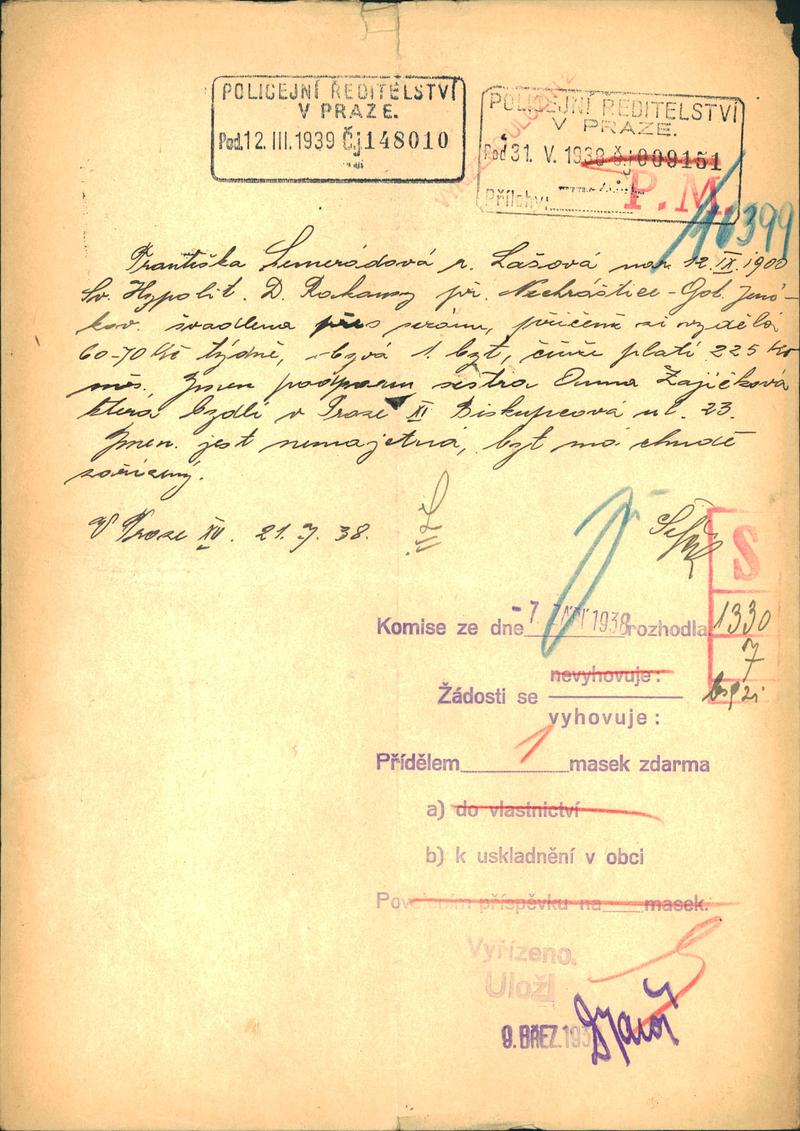 POLICEJNÍ ŘEDITELSTVÍ
V PRAZE.
Pod. 12. III. 1939 Č.j. 148010
POLICEJNÍ ŘEDITELSTVÍ
V PRAZE.
Pod. 31. V. 1938 Č.j. 009151
Přílohy:
P.M.
Františka Semerádová r. Lašová nar. 12.IX.1900
Sv. Hypolit. D. Rakousy př. Nechráštice - Gol. Jení-
kov. švadlena přes sezónu, přičemž si vydělá
60-70 Kč týdně, obývá 1. byt, činže platí 225 Kč
měs. Jmen. podporuje sestra Anna Zajíčková
která bydlí v Praze XI Biskupcová ul. 23.
Jmen. jest nemajetná, byt má chudě
zařízený.
V Praze XV. 21.7.38.
S
1330
7
Komise ze dne -7. ZÁŘÍ 1938 rozhodla
nevyhovuje:
Žádosti se
vyhovuje:
Přídělem 1 masek zdarma
a) do vlastnictví
b) k uskladnění v obci
Povolením příspěvku na masek.
Vyřízeno.
Ulož!
9. BŘEZ. 193